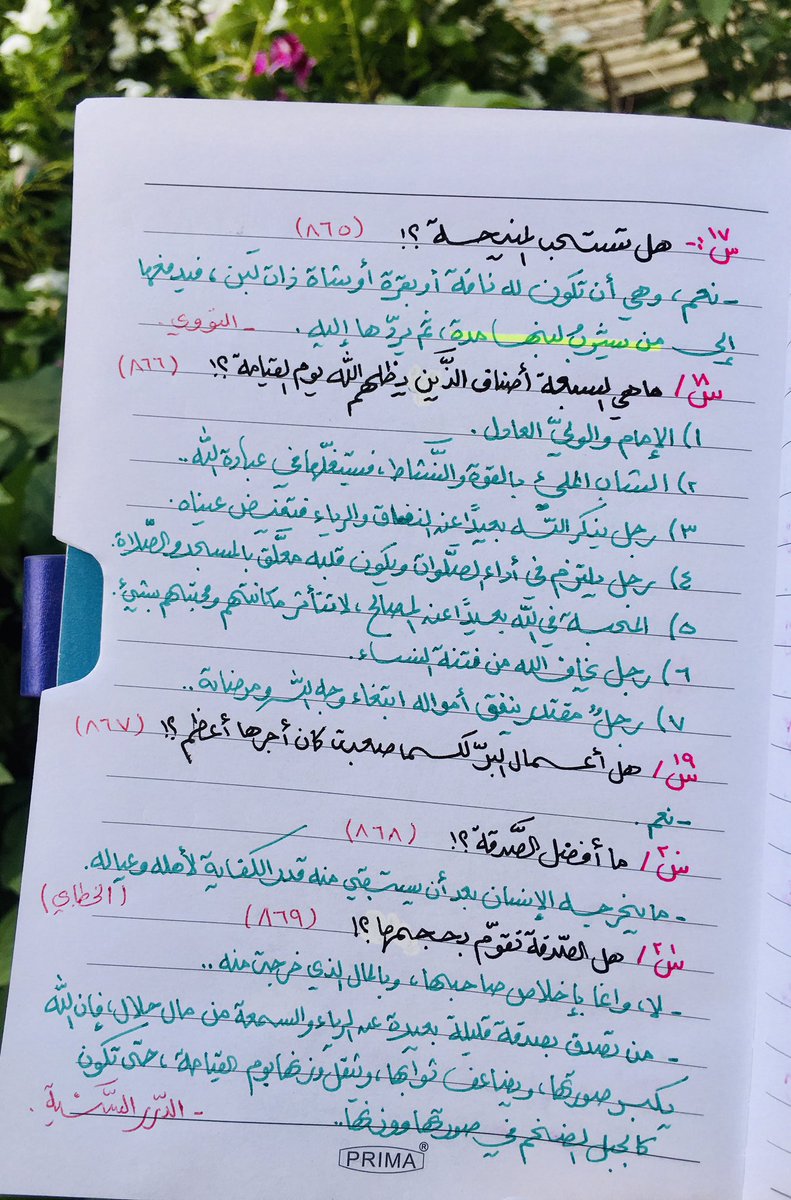 س١٧:- هل تستحب المنيحة ؟! (٨٦٥)
- نعم، وهي أن تكون له ناقة أو بقرة أو شاة ذات لبن، فيدفعها
إلى من يشرب لبنها مدة، ثم يردّها إليه. - النووي.
س١٨/ ما هي السبعة أصناف الذَّين يظلهم الله يوم القيامة ؟! (٨٦٦)
١) الإمام والوليّ العادل.
٢) الشاب المليء بالقوة والنَّشاط، فيستغلّها في عبادة الله..
٣) رجل يذكر الله بعيدًا عن النفاق والرياء فتفيض عيناه.
٤) رجل يلتزم في أداء الصلوات ويكون قلبه معلَّق بالمسجد والصَّلاة.
٥) المحبة في الله بعيدًا عن المصالح، لا تتأثر مكانتهم ومحبتهم بشيءٍ.
٦) رجل يخاف الله من فتنة النساء.
٧) رجلٌ مقتدر ينفق أمواله ابتغاء وجه الله ومرضاته..
س١٩/ هل أعمال البرّ كلما صعبت كان أجرها أعظم ؟! (٨٦٧)
- نعم.
س٢٠/ ما أفضل الصَّدقة ؟! (٨٦٨)
- ما يخرجه الإنسان بعد أن يستبقي منه قدر الكفاية لأهله وعياله.
(الخطابي)
س٢١/ هل الصَّدقة تقوّم بحجمها ؟! (٨٦٩)
- لا، وإنما بإخلاص صاحبها، وبالمال الذي خرجت منه..
- من تصدق بصدقة قليلة بعيدة عن الرياء والسمعة من مال حلال، فإن الله
يكبر صورتها، ويضاعف ثوابها، ويثقل وزنها يوم القيامة، حتى تكون
كالجبل الضخم في صورتها ووزنها.. - الدّرر السَّنيّة.
PRIMA®